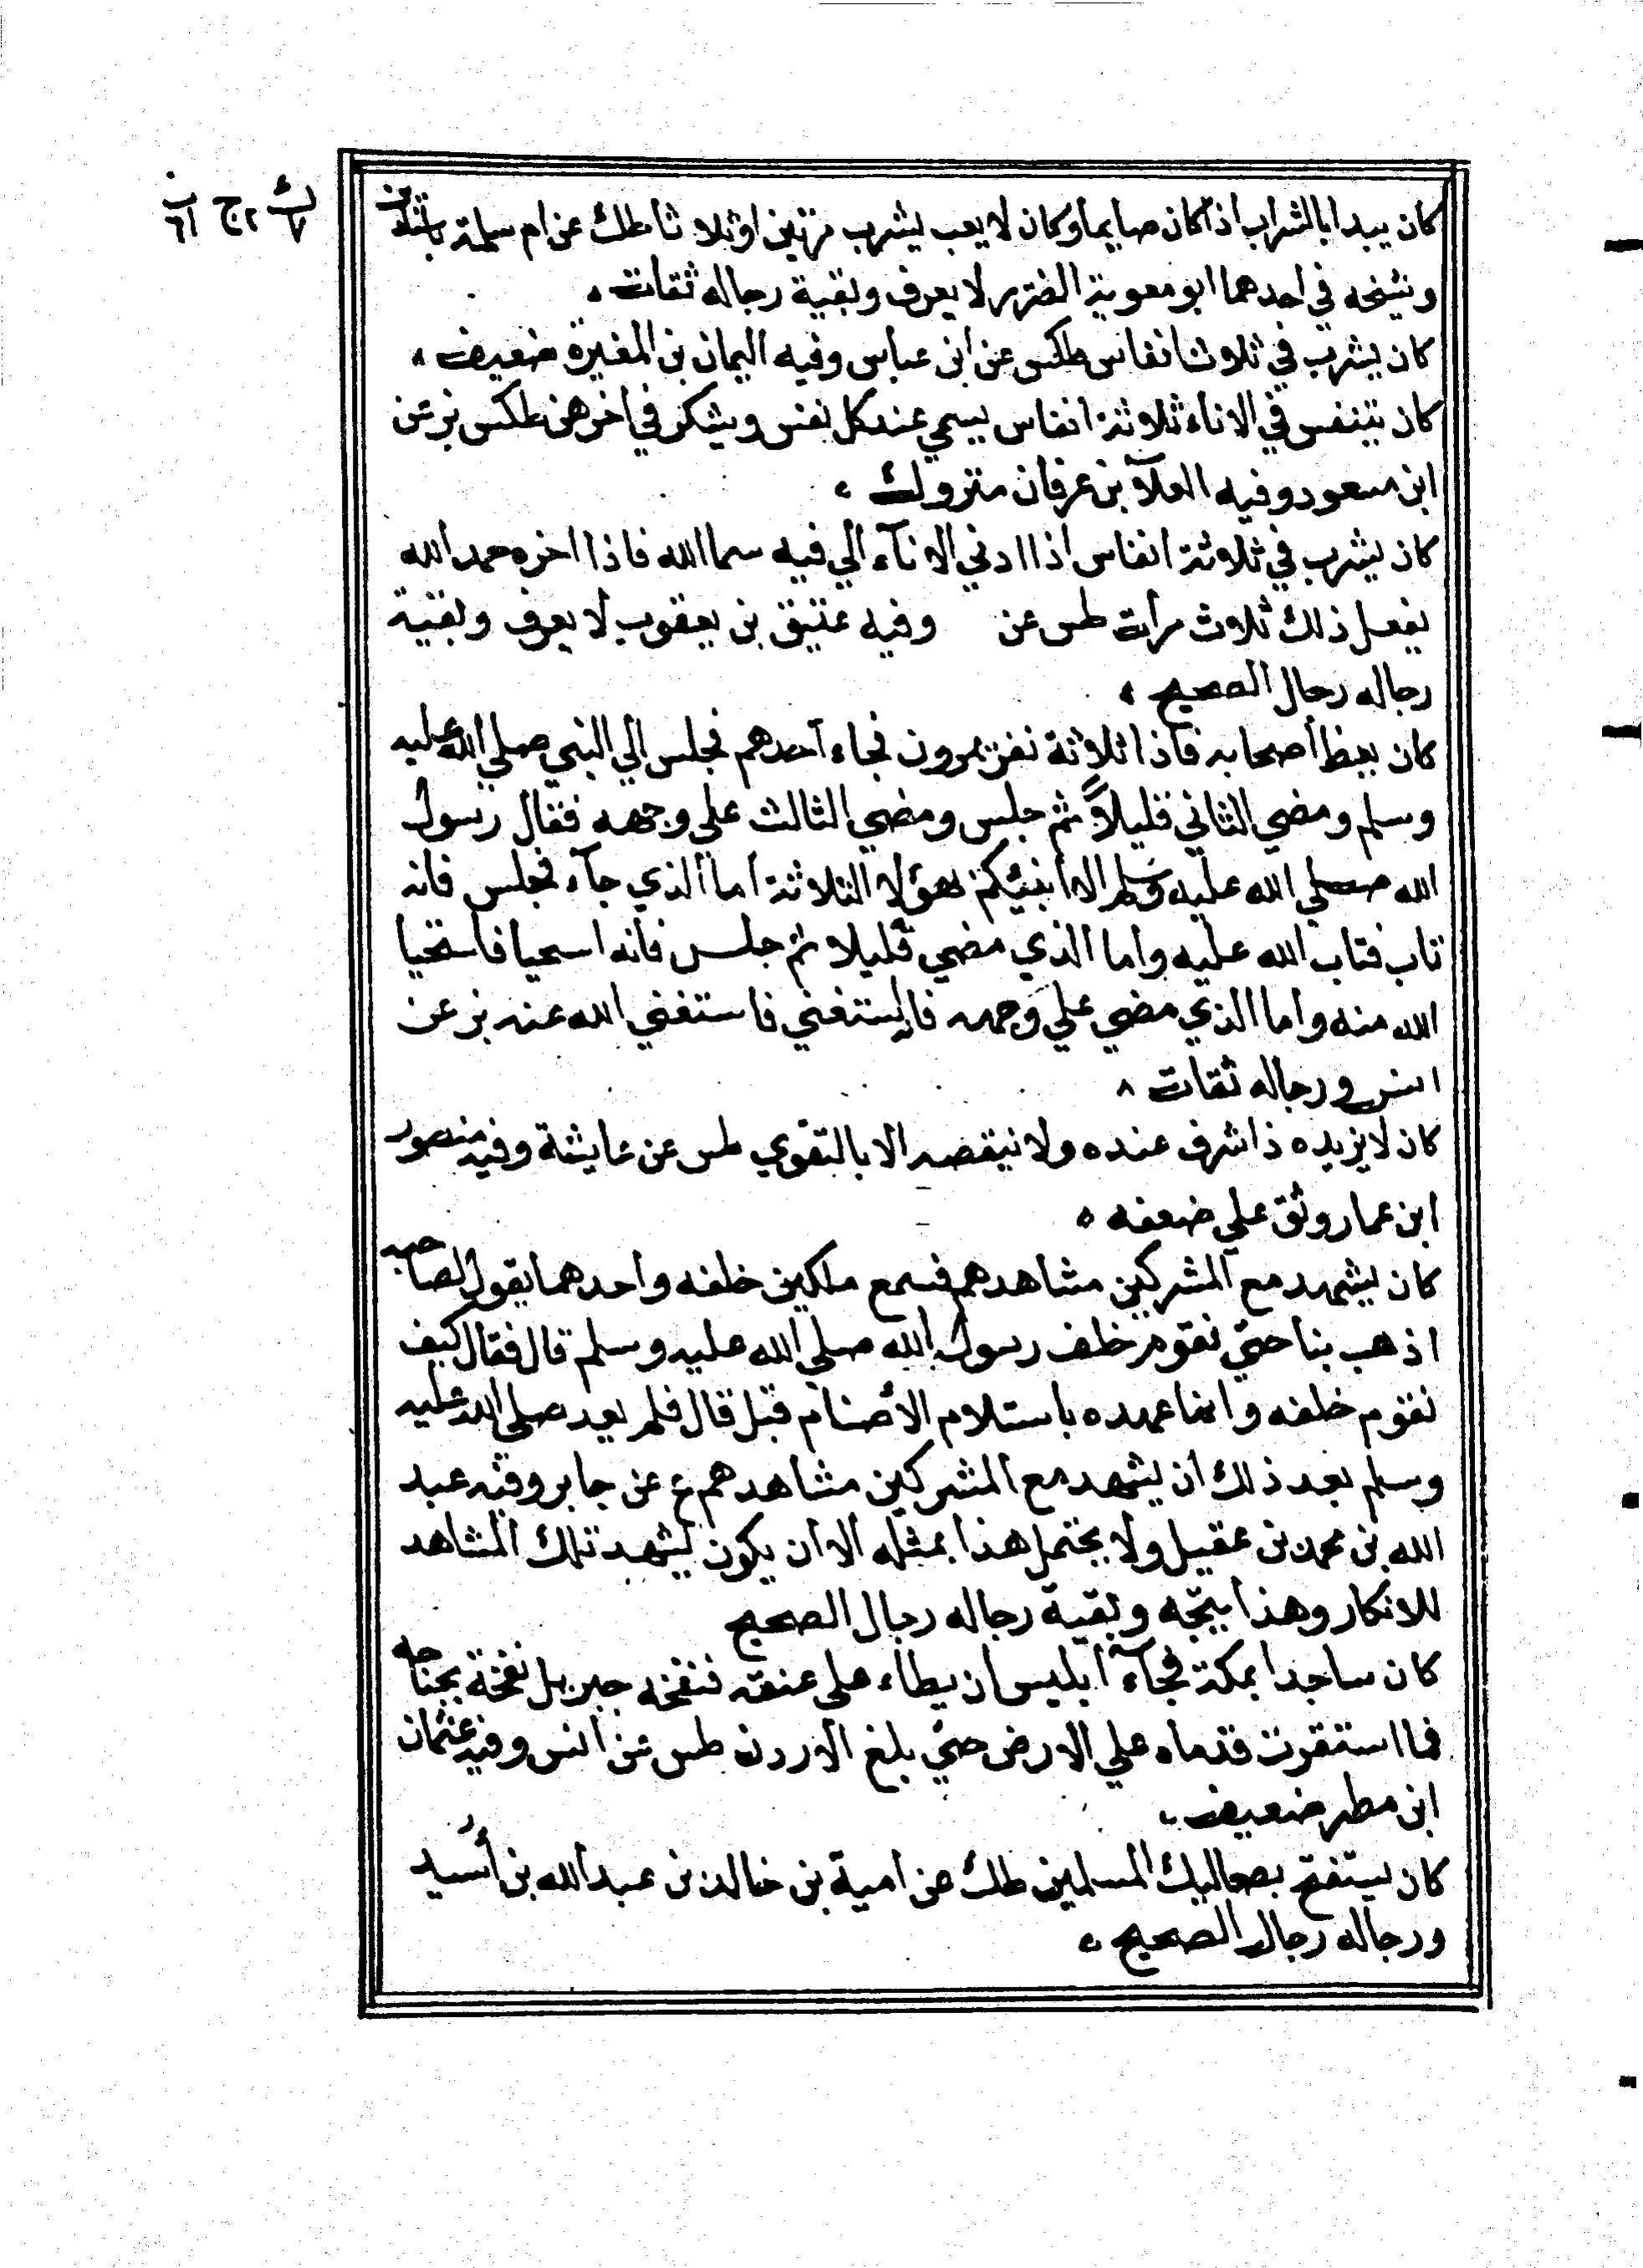 كان يبدا بالشراب اذا كان صايما وكان لا يعب يشرب مرتين او ثلاثا طك عن ام سلمة باسنادين
وشيخه في احدهما ابو معوية الضرير لا يعرف وبقية رجاله ثقات
كان يشرب في ثلاث انفاس طكس عن ابن عباس وفيه اليمان بن المغيرة ضعيف
كان يتنفس في الاناء ثلاثة انفاس يسمي عند كل نفس ويشكر في اخرهن طكس بز عن
ابن مسعود وفيه العلآ بن عرفان متروك
كان يشرب في ثلاثة انفاس اذا ادني الانآء الي فيه سما الله فاذا اخره حمد الله
يفعل ذلك ثلاث مرات طس عن وفيه عتيق بن يعقوب لا يعرف وبقية
رجاله رجال الصحيح
كان يعظ أصحابه فاذا ثلاثة نفر يمرون فجاء أحدهم فجلس الي النبي صلي الله عليه
وسلم ومضي الثاني قليلاً ثم جلس ومضي الثالث علي وجهه فقال رسول
الله صلي الله عليه وسلم الا أنبئكم بهؤلا الثلاثة اما الذي جآء فجلس فانه
تاب فتاب الله عليه واما الذي مضي قليلا ثم جلس فانه استحيا فاستحيا
الله منه واما الذي مضي علي وجهه فانه استغني فاستغني الله عنه بز عن
انس ورجاله ثقات
كان لا يزيده ذا شرف عنده ولا ينقصه الا بالتقوي طس عن عايشة وفيه منصور
ابن عمار وثق علي ضعفه
كان يشهد مع المشركين مشاهدهم فسمع ملكين خلفه واحدهما يقول لصاحبه
اذهب بنا حتي نقوم خلف رسول الله صلي الله عليه وسلم قال فقال كيف
نقوم خلفه وانما عهده باستلام الأصنام قبل قال فلم يعد صلي الله عليه
وسلم بعد ذلك ان يشهد مع المشركين مشاهدهم ع عن جابر وفيه عبد
الله بن محمد بن عقيل ولا يحتمل هذا بمثله الا ان يكون يشهد تلك المشاهد
للانكار وهذا يتجه وبقية رجاله رجال الصحيح
كان ساجدا بمكة فجآء ابليس ان يطاء علي عنقه فنفخه جبريل نفخة بجناحه
فما استقرت قدماه علي الارض حتي بلغ الاردن طس عن انس وفيه عثمان
ابن مطر ضعيف
كان يستفتح بصعاليك المسلمين طك عن امية بن خالد بن عبد الله بن أسيد
ورجاله رجال الصحيح